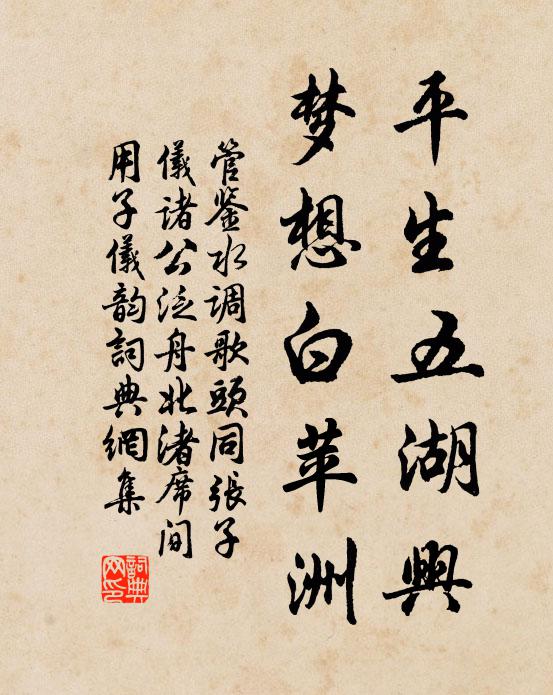 平生五湖興
梦想白苹洲
管鉴水调歌頭同張子
儀諸公泛舟北渚席间
用子儀韵詞典網集
詞典网印